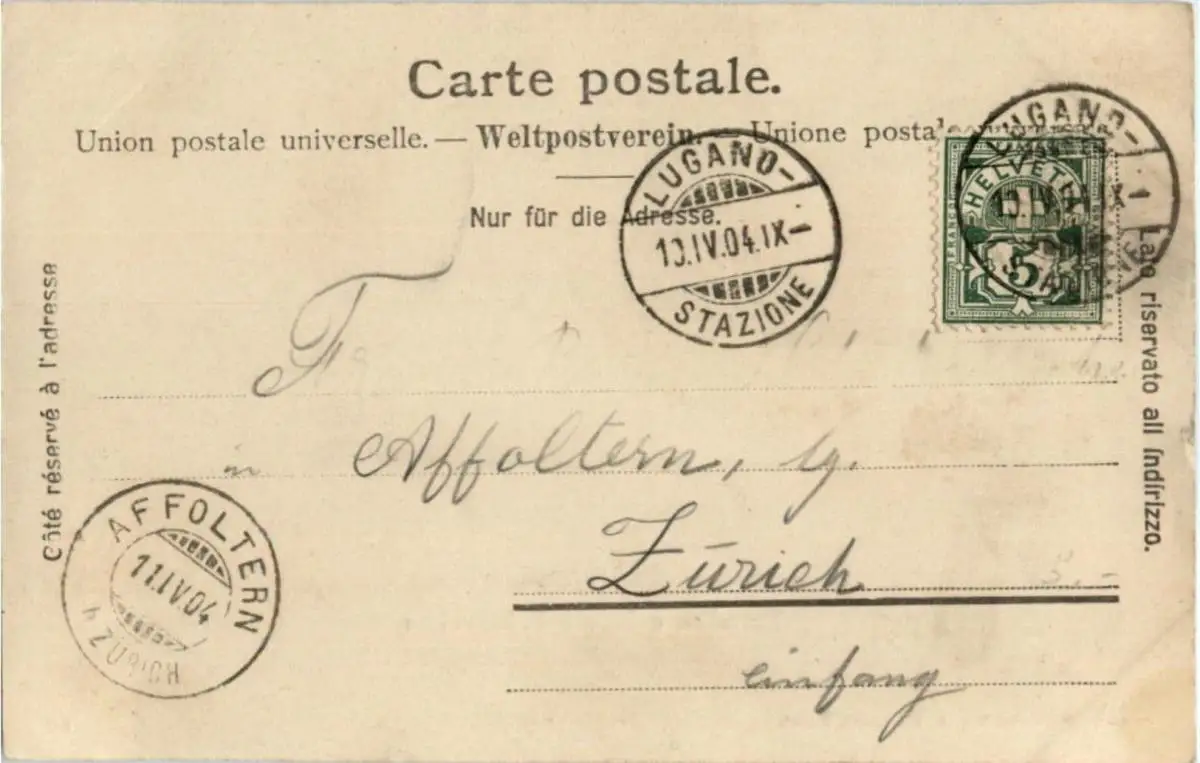 Carte postale.
Union postale universelle. — Weltpostverein. — Unione postal
Nur für die Adresse.
LUGANO-
10.IV.04.IX-
STAZIONE
LUGANO-
HELVETIA
FRANCO
5
Côté réservé à l'adresse
Lato riservato all Indirizzo.
in Affoltern,
Zürich
einfang
AFFOLTERN
11.IV.04